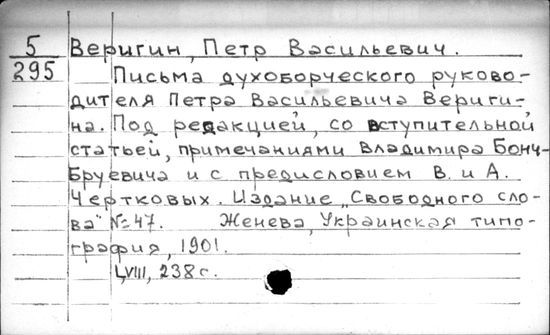 5 Веригин, Петр Васильевич.
295 Письма духоборческого руково-
дителя Петра Васильевича Вериги-
на. Под редакцией, со вступительной
статьей, примечаниями Владимира Бонч-
Бруевича и с предисловием В. и А.
Чертковых. Издание „Свободного сло-
ва" №47. Женева, Украинская типо-
графия, 1901.
LVIII, 238 с.